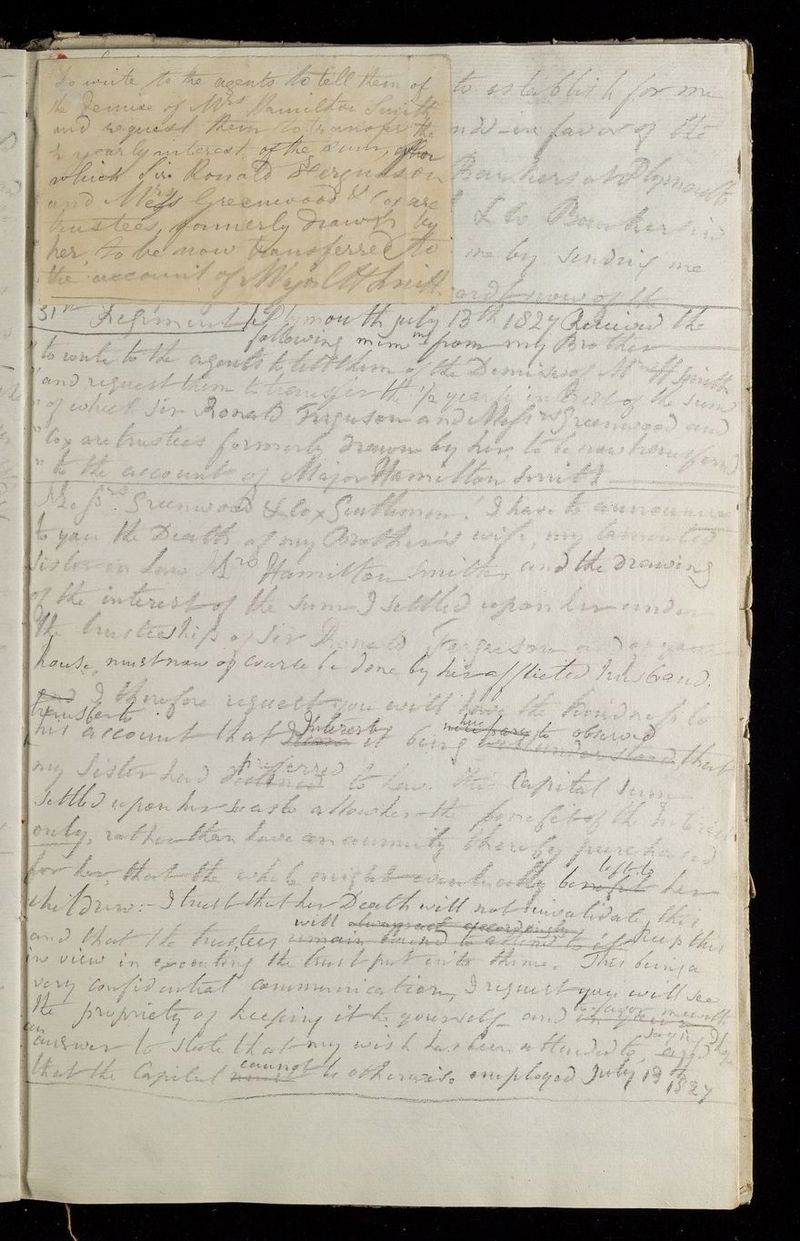 to write to the agents to tell them of
the Demise of Mrs Hamilton Smith
and request them to transfer the
½ yearly interest of the sum, of
which Sir Ronald Ferguson
and Messrs Greenwood & Cox are
trustees, formerly drawn by
her, to be now transferred to
the account of Major H Smith
to establish for me
in favor of the
Plymouth
me by sending me
now of the
31st Regiment Plymouth july 13th 1827 Received the
following mem from my Brother
"to write to the agents to tell them of the Demise of Mrs H Smith
"and request them to transfer the ½ yearly interest of the sum
"of which Sir Ronald Ferguson and Messrs Greenwood and
"Cox are trustees formerly drawn by her, to be now transferred
"to the account of Major Hamilton Smith
Messrs. Greenwood & Cox Gentlemen! I have to announce
to you the Death of my Brother's wife, my lamented
Sister in Law Mrs Hamilton Smith, and the drawing
of the interest of the sum I settled upon her under
the trusteeship of Sir Ronald Ferguson and of your
house, must now of course be done by his afflicted husband.
and I therefore request you will have the kindness to
transfer to
his account that Interest it being to observed that
my Sister had preferred to have the Capital sum
settled upon her so as to allow her the benefit of the Interest
only, rather than have an annuity thereby purchased
for her, that the whole might eventually be left to her
children:- I trust that her Death will not invalidate this
and that the trustees will always act accordingly keep this
in view in executing the trust put into them. This being a
very confidential communication, I request you will see
the propriety of keeping it to yourself and to favor me with
an
answer to state that my wish has been attended to, saying
that the Capital cannot be otherwise employed July 13th
1827